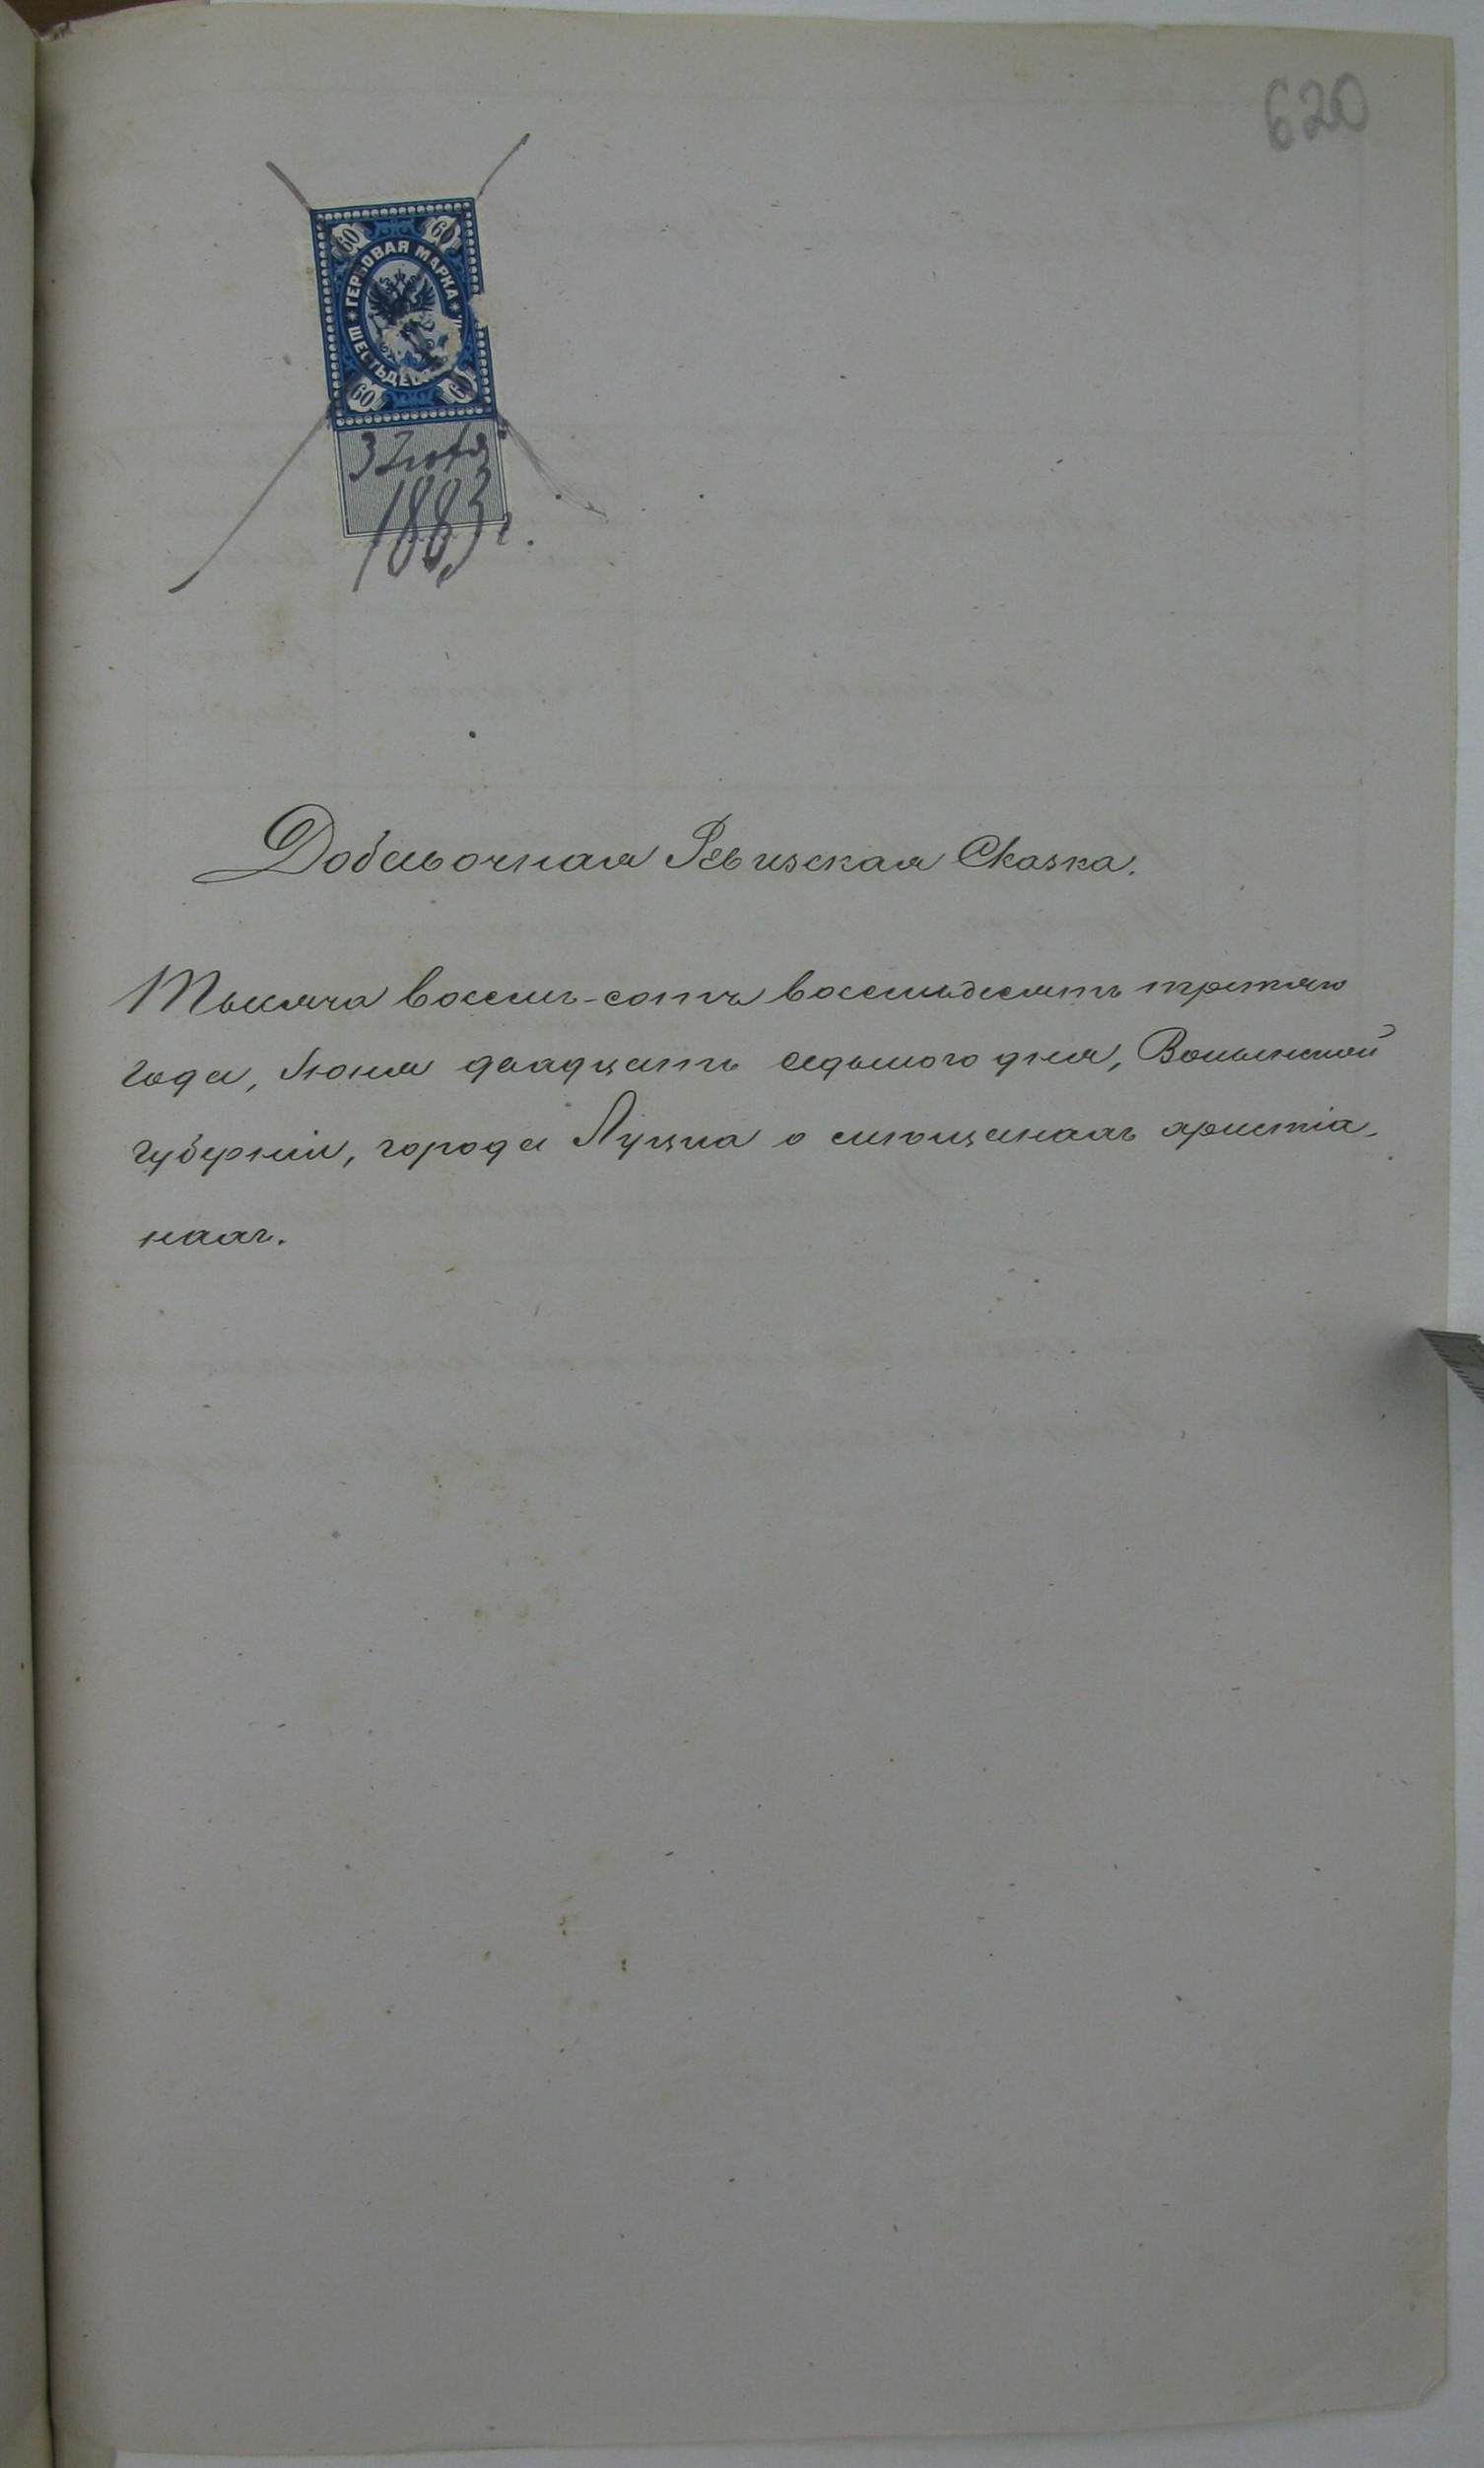 620
60 60
ГЕРБОВАЯ МАРКА
ШЕСТЬДЕС
60 60
3 Іюля
1883 г.
Добавочная Ревизская Сказка.
Тысяча восемь-сотъ восемьдесятъ третьяго
года, Іюня двадцать седьмого дня, Волынской
губерніи, города Луцка о мѣщанахъ христіа-
нахъ.